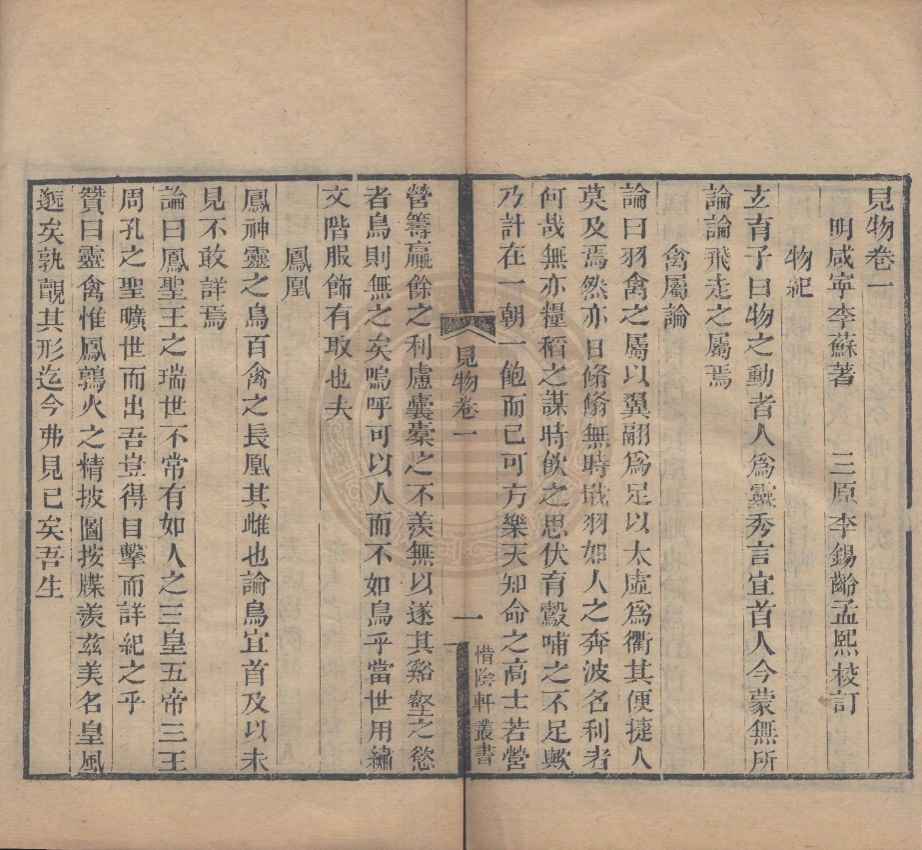 見物卷一
明咸寧李蘇著　三原李錫齡孟熙校訂
物紀
玄育子曰物之動者人爲靈秀言宜首人今蒙無所
論論飛走之屬焉
禽屬論
論曰羽禽之屬以翼翮爲足以太虛爲衢其便捷人
莫及焉然亦日翛翛無時戢羽如人之奔波名利者
何哉無亦糧稻之謀時飲之思伏育鷇哺之不足歟
乃計在一朝一飽而已可方樂天知命之高士若營
見物卷一
一
惜陰軒叢書
營篝贏餘之利慮囊橐之不羨無以遂其谿壑之慾
者鳥則無之矣嗚呼可以人而不如鳥乎當世用繡
文階服飾有取也夫
鳳凰
鳳神靈之鳥百禽之長凰其雌也論鳥宜首及以未
見不敢詳焉
論曰鳳聖王之瑞世不常有如人之三皇五帝三王
周孔之聖曠世而出吾豈得目擊而詳紀之乎
贊曰靈禽惟鳳鶉火之精披圖按牒羨兹美名皇風
邈矣孰觀其形迄今弗見已矣吾生